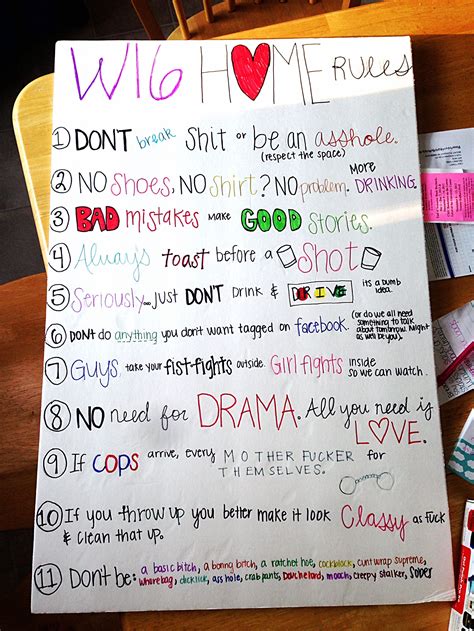 W16 HOME RULES
1 DON'T break shit or be an asshole.
(respect the space)
2 NO Shoes, NO shirt? NO problem. MORE DRINKING.
3 BAD mistakes MAKE GOOD stories.
4 Always toast before a shot
5 Seriously... just DON'T DRINK & DRIVE its a dumb idea.
6 DON'T DO anything you don't want tagged on facebook. (or do we all need something to talk about tomorrow. Might as well be you).
7 Guys, take your fist-fights outside. Girl fights inside so we can watch.
8 NO need for DRAMA. All you need is LOVE.
9 If COPS arrive, every MOTHER FUCKER for THEMSELVES.
10 If you throw up you better make it look Classy as fuck
& clean that up.
11 Don't be: a basic bitch, a boring bitch, a ratchet hoe, cockblock, cunt wrap supreme,
whorebag, dicklick, ass hole, crab pants, Douchelord, mooch, creepy stalker, sober